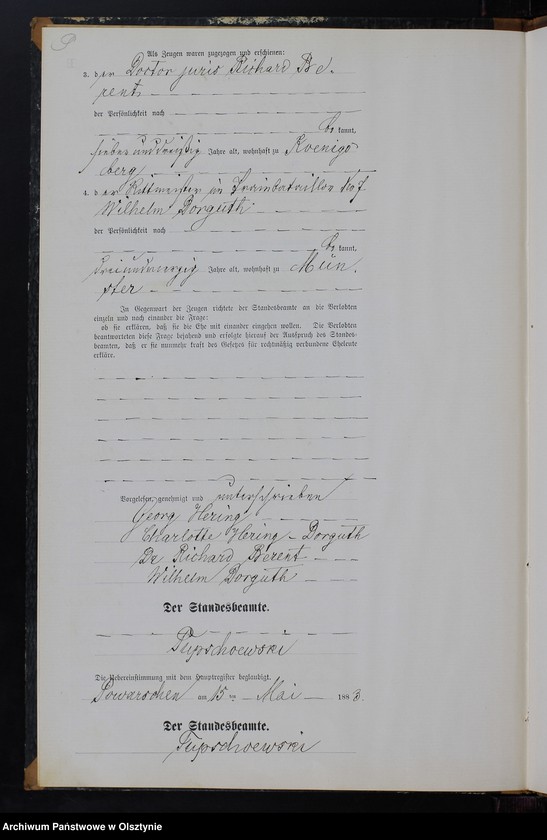 Als Zeugen waren zugezogen und erschienen:
3. der Doctor juris Richard Be-
rent
der Persönlichkeit nach
be kannt,
sieben und dreißig Jahre alt, wohnhaft zu Koenigs-
berg
4. der Rittmeister im Trainbataillon
Wilhelm Dorguth
der Persönlichkeit nach
be kannt,
Jahre alt, wohnhaft zu Mün-
ster
In Gegenwart der Zeugen richtete der Standesbeamte an die Verlobten
einzeln und nach einander die Frage:
ob sie erklären, daß sie die Ehe mit einander eingehen wollen. Die Verlobten
beantworteten diese Frage bejahend und erfolgte hierauf der Ausspruch des Standes-
beamten, daß er sie nunmehr kraft des Gesetzes für rechtmäßig verbundene Eheleute
erkläre.
Vorgelesen, genehmigt und unterschrieben
Georg Hering
Charlotte Hering - Dorguth
Dr Richard Berent
Wilhelm Dorguth
Der Standesbeamte.
Tupschoewski
Die Uebereinstimmung mit dem Hauptregister beglaubigt.
Powarschen am 15 ten Mai 1883.
Der Standesbeamte.
Tupschoewski
Archiwum Państwowe w Olsztynie